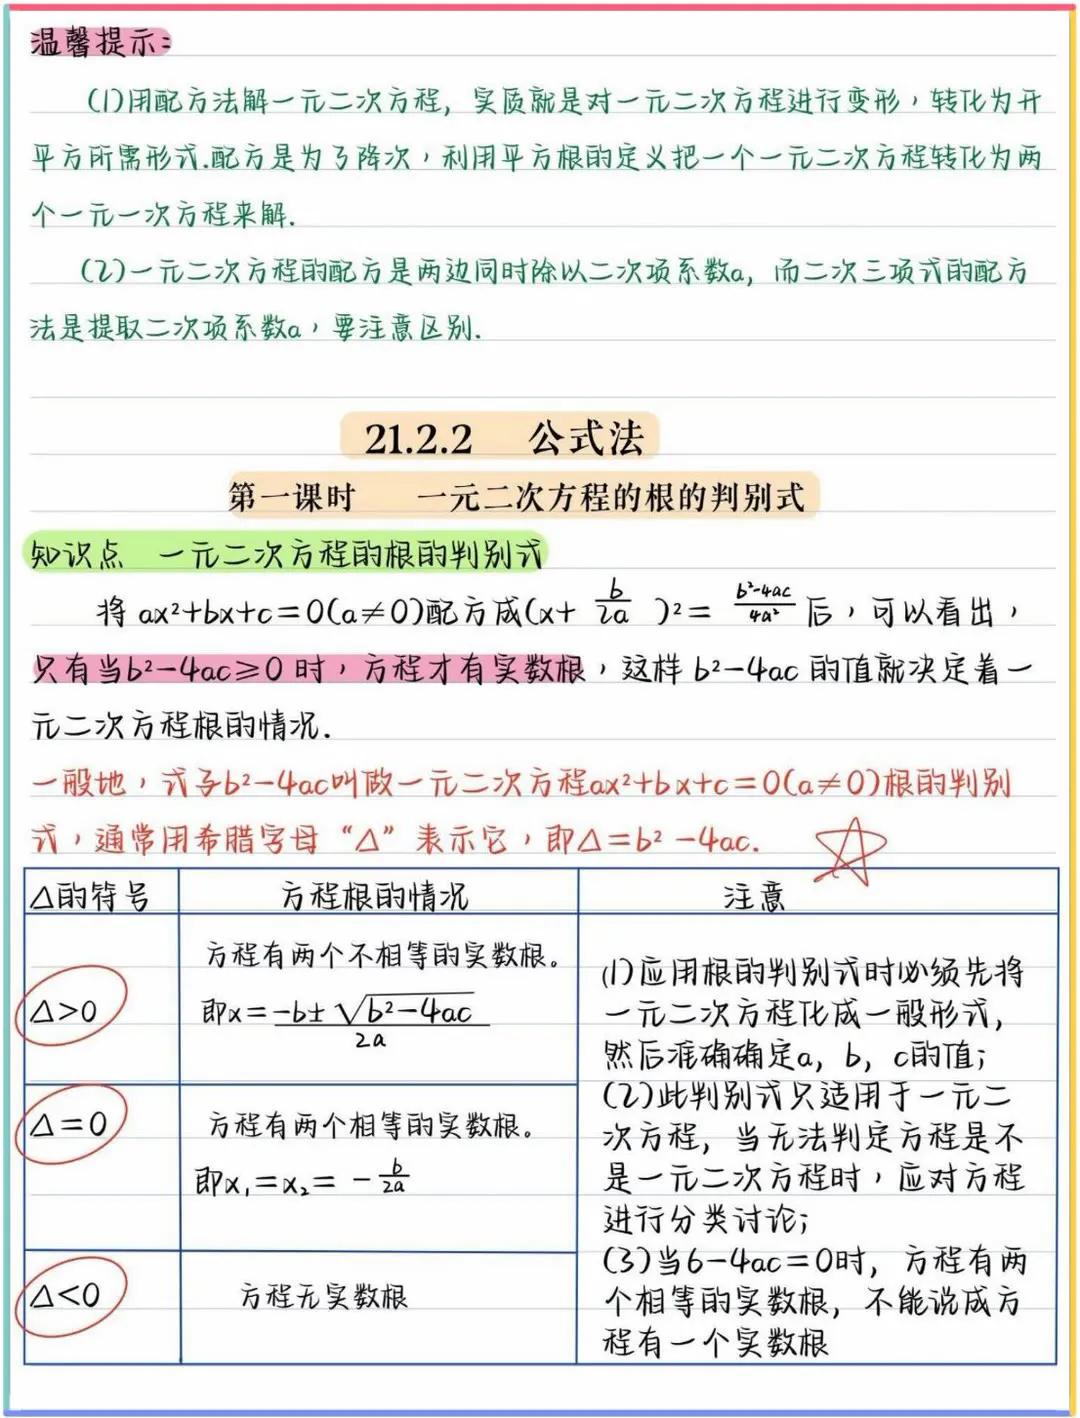 温馨提示:
(1)用配方法解一元二次方程, 实质就是对一元二次方程进行变形,转化为开
平方所需形式.配方是为了降次,利用平方根的定义把一个一元二次方程转化为两
个一元一次方程来解.
(2)一元二次方程的配方是两边同时除以二次项系数a, 而二次三项式的配方
法是提取二次项系数a,要注意区别.
21.2.2 公式法
第一课时 一元二次方程的根的判别式
知识点 一元二次方程的根的判别式
将 ax²+bx+c=0(a≠0)配方成(x+ b/2a )²= b²-4ac/4a² 后,可以看出,
只有当b²-4ac≥0 时,方程才有实数根,这样 b²-4ac 的值就决定着一
元二次方程根的情况.
一般地,式子b²-4ac叫做一元二次方程ax²+bx+c=0(a≠0)根的判别
式,通常用希腊字母 “△” 表示它,即△=b²-4ac.
△的符号 方程根的情况 注意
△>0
方程有两个不相等的实数根。
即x=-b±√b²-4ac/2a
△=0
方程有两个相等的实数根。
即x₁=x₂= -b/2a
△<0
方程无实数根
(1)应用根的判别式时必须先将
一元二次方程化成一般形式,
然后准确确定a, b, c的值;
(2)此判别式只适用于一元二
次方程, 当无法判定方程是不
是一元二次方程时,应对方程
进行分类讨论;
(3)当6-4ac=0时, 方程有两
个相等的实数根, 不能说成方
程有一个实数根